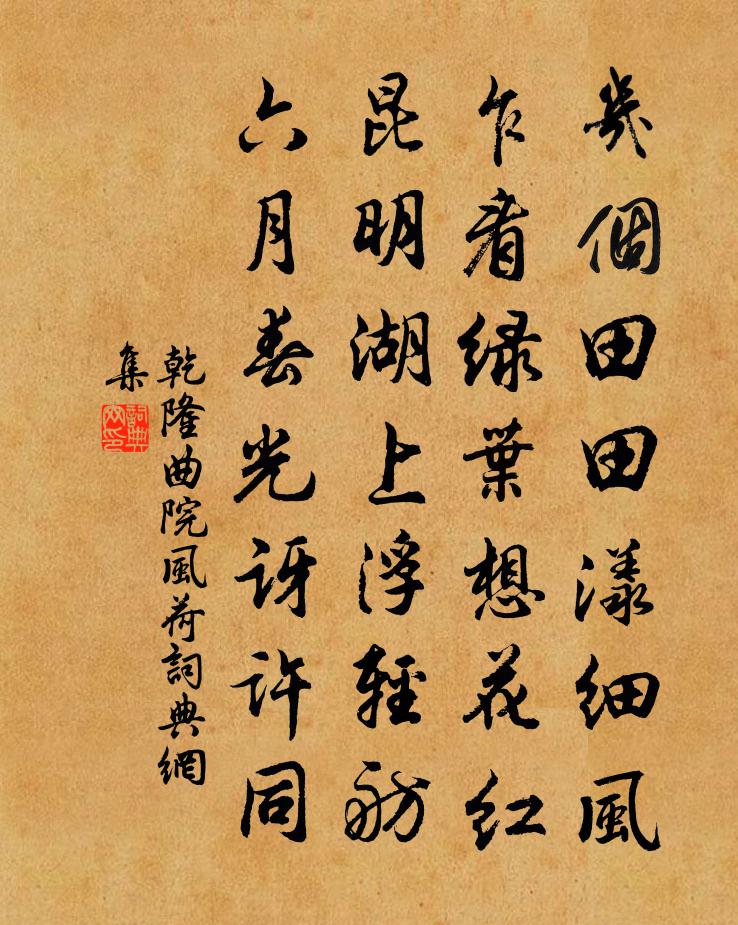 幾個田田漾細風
乍看綠葉想花紅
昆明湖上浮輕舫
六月春光訝許同
乾隆曲院風荷詞典網
集
詞典網印